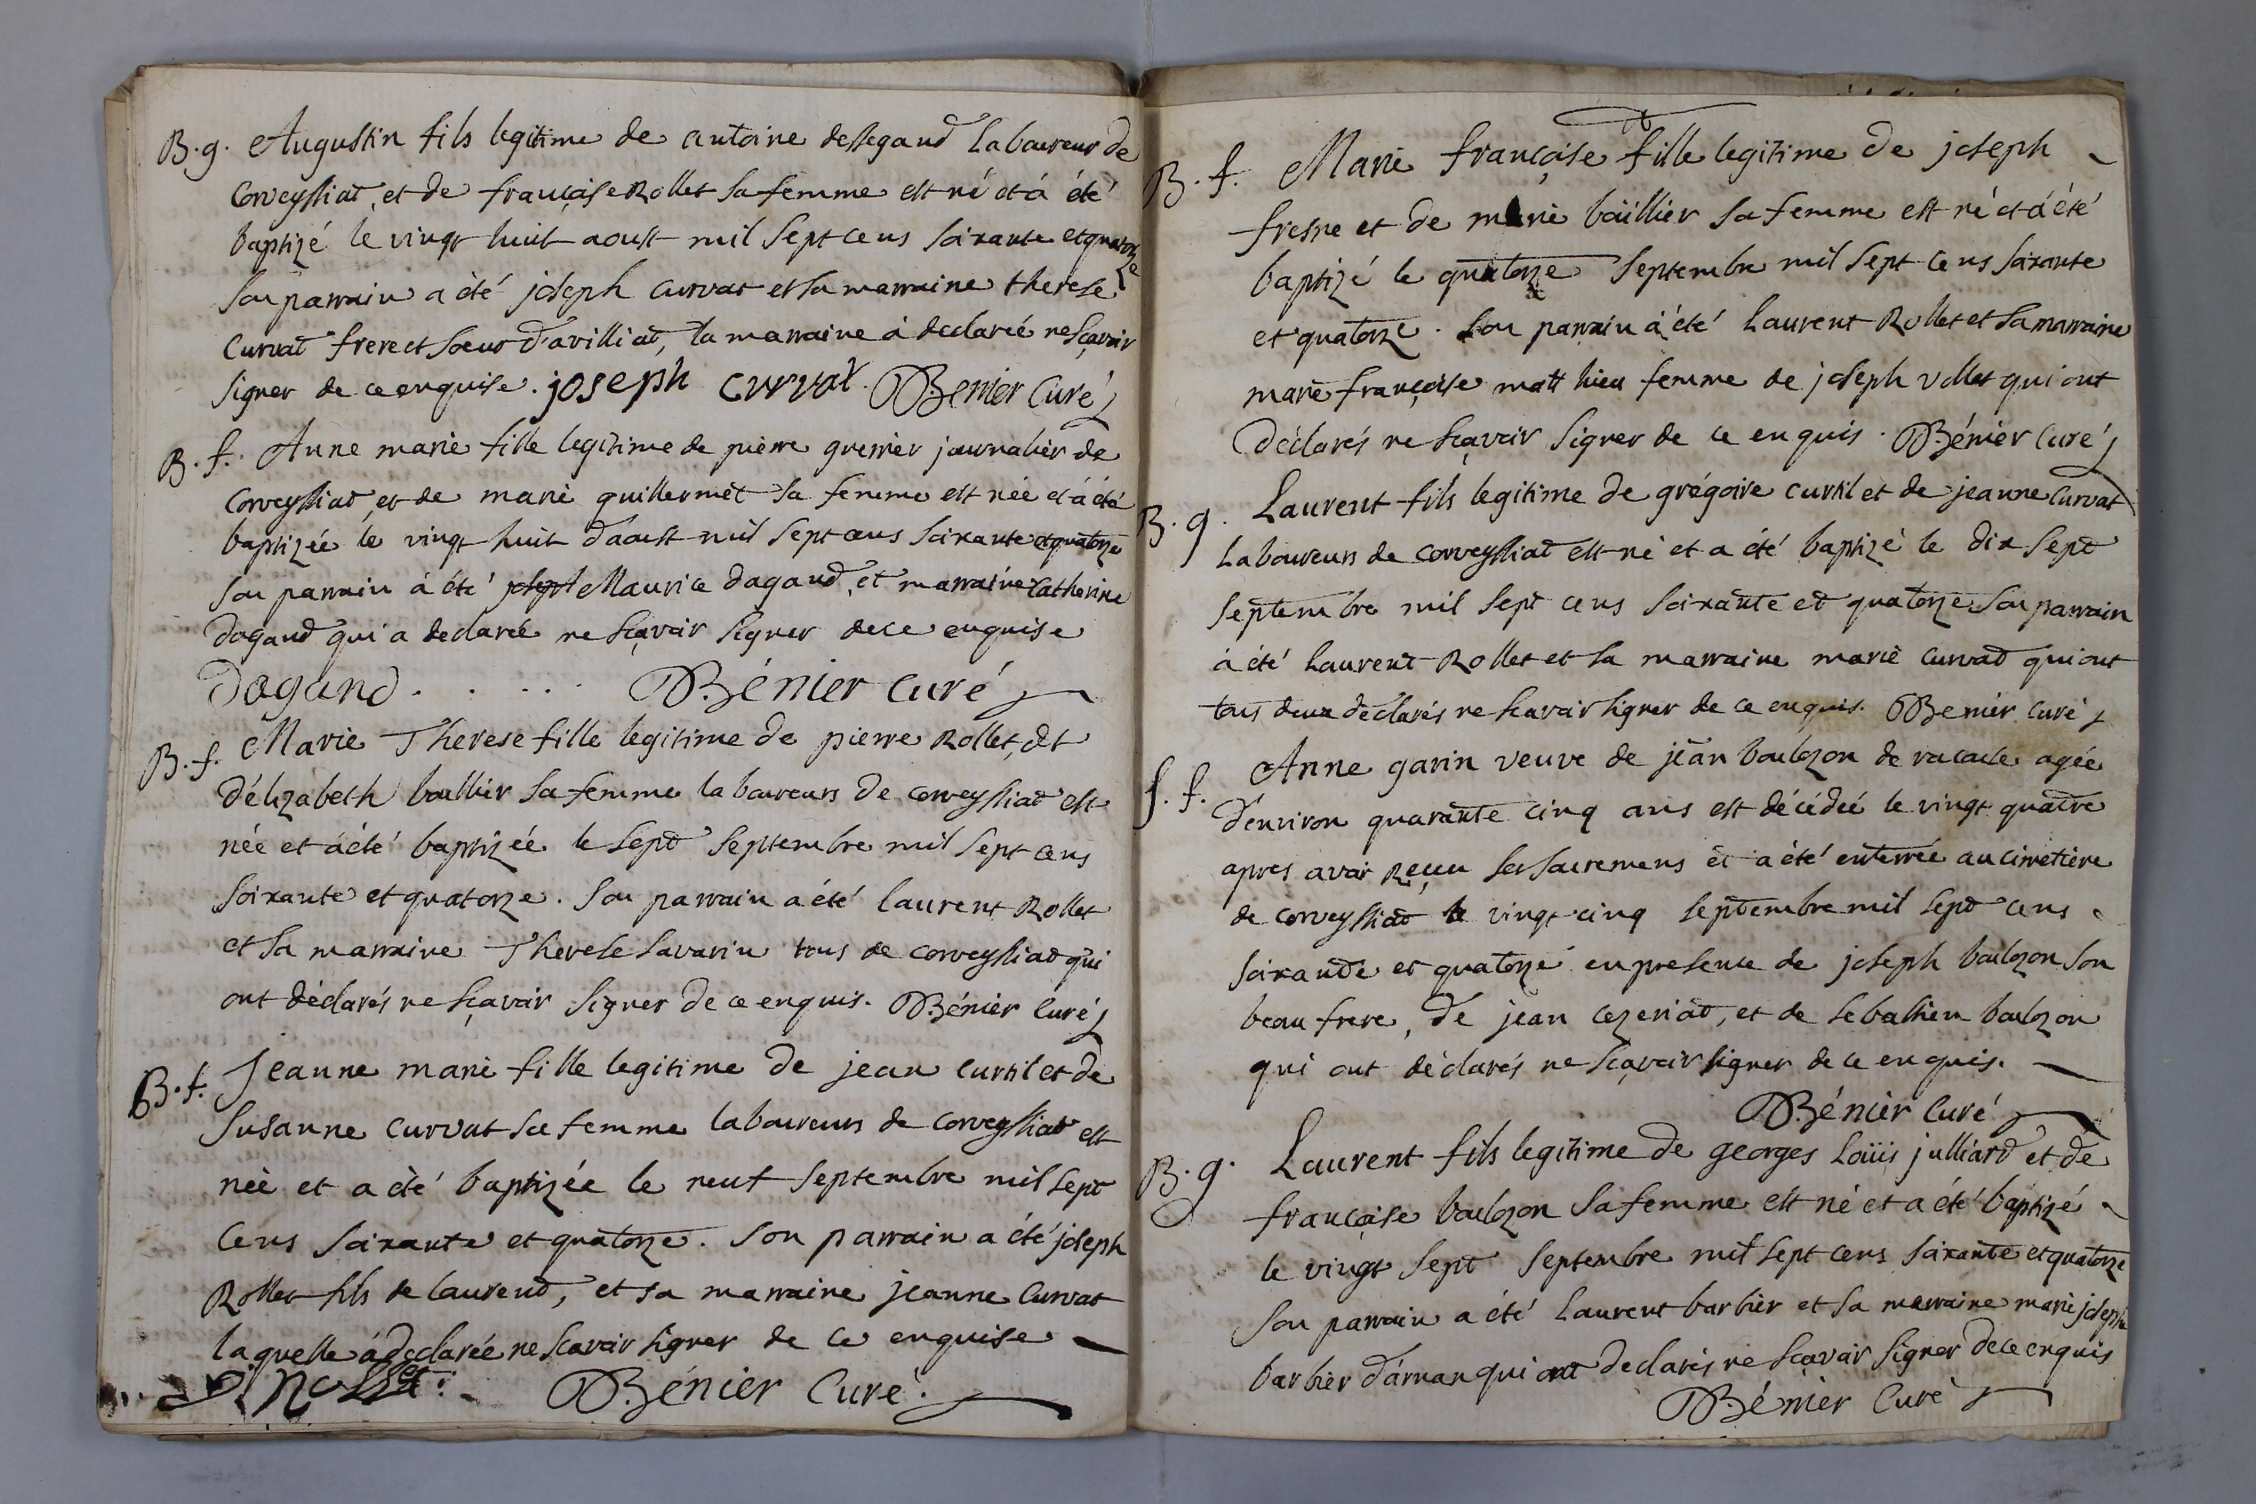 B. g. Augustin fils legitime de antoine dessegaud laboureur de
Corveyssiat, et de françoise Rollet sa femme est né et à été
baptizé le vingt huit aoust mil sept cens soixante et quatorze
son parrain a été joseph curvat et sa marraine therese
Curvat frere et soeur d'avilliat, la marraine à declarée ne sçavoir
signer de ce enquise. joseph curvat. Bénier Curé
B. f. Anne marie fille legitime de pierre grenier journalier de
Corveyssiat, et de marie guillermet sa femme est née et à été
baptizée le vingt huit d'aoust mil sept cens soixante et quatorze
son parrain à été Maurice dagaud, et marraine Catherine
dagaud qui a declarée ne sçavoir signer de ce enquise
Dagand . . . . . Bénier Curé
B. f. Marie Therese fille legitime de pierre Rollet, et
d'élizabeth baillier sa femme laboureurs de corveyssiat est
née et à été baptizée le sept septembre mil sept cens
soixante et quatorze. son parrain a été laurent Rollet
et sa marraine Therese savarin tous de corveyssiat qui
ont déclarés ne sçavoir signer de ce enquis. Bénier Curé
B. f. Jeanne marie fille legitime de jean curtil et de
Susanne curvat sa femme laboureurs de corveyssiat est
née et a été baptizée le neuf septembre mil sept
cens soixante et quatorze. son parrain a été joseph
Rollet fils de laurend, et sa marraine jeanne Curvat
laquelle à declarée ne scavoir signer de ce enquise
Bénier Curé.
B. f. Marie françoise fille legitime de joseph
fresne et de marie baillier sa femme est né et à été
baptizé le quatorze septembre mil sept cens soixante
et quatorze. son parrain à été Laurent Rollet et sa marraine
marie françoise matthieu femme de joseph vollet qui ont
déclarés ne sçavoir signer de ce enquis. Bénier Curé
B. g. Laurent fils legitime de grégoire curtil et de jeanne Curvat
laboureurs de corveyssiat est né et a été baptizé le dix sept
septembre mil sept cens soixante et quatorze son parrain
à été laurent Rollet et sa marraine marie curvat qui ont
tous deux déclarés ne scavoir signer de ce enquis. Benier curé
f. f. Anne garin veuve de jean boulozon de racoule agée
d'environ quarante cinq ans est décédeé le vingt quatre
apres avoir reçeu ses sacremens et a été enterrée au cimetiere
de corveyssiat le vingt-cinq septembre mil sept cens
soixante et quatorze en presence de joseph boulozon son
beau frere, de jean cezeriat, et de sebastien boulozon
qui ont déclarés ne sçavoir signer de ce enquis.
Bénier Curé
B. g. Laurent fils legitime de georges Loüis julliard et de
françoise boulozon sa femme est né et a été baptizé
le vingt sept septembre mil sept cens soixante et quatorze
son parrain a été laurent barbier et sa marraine marie joseph
barbier d'arnan qui ont declarés ne scavoir signer de ce enquis
Bénier Curé